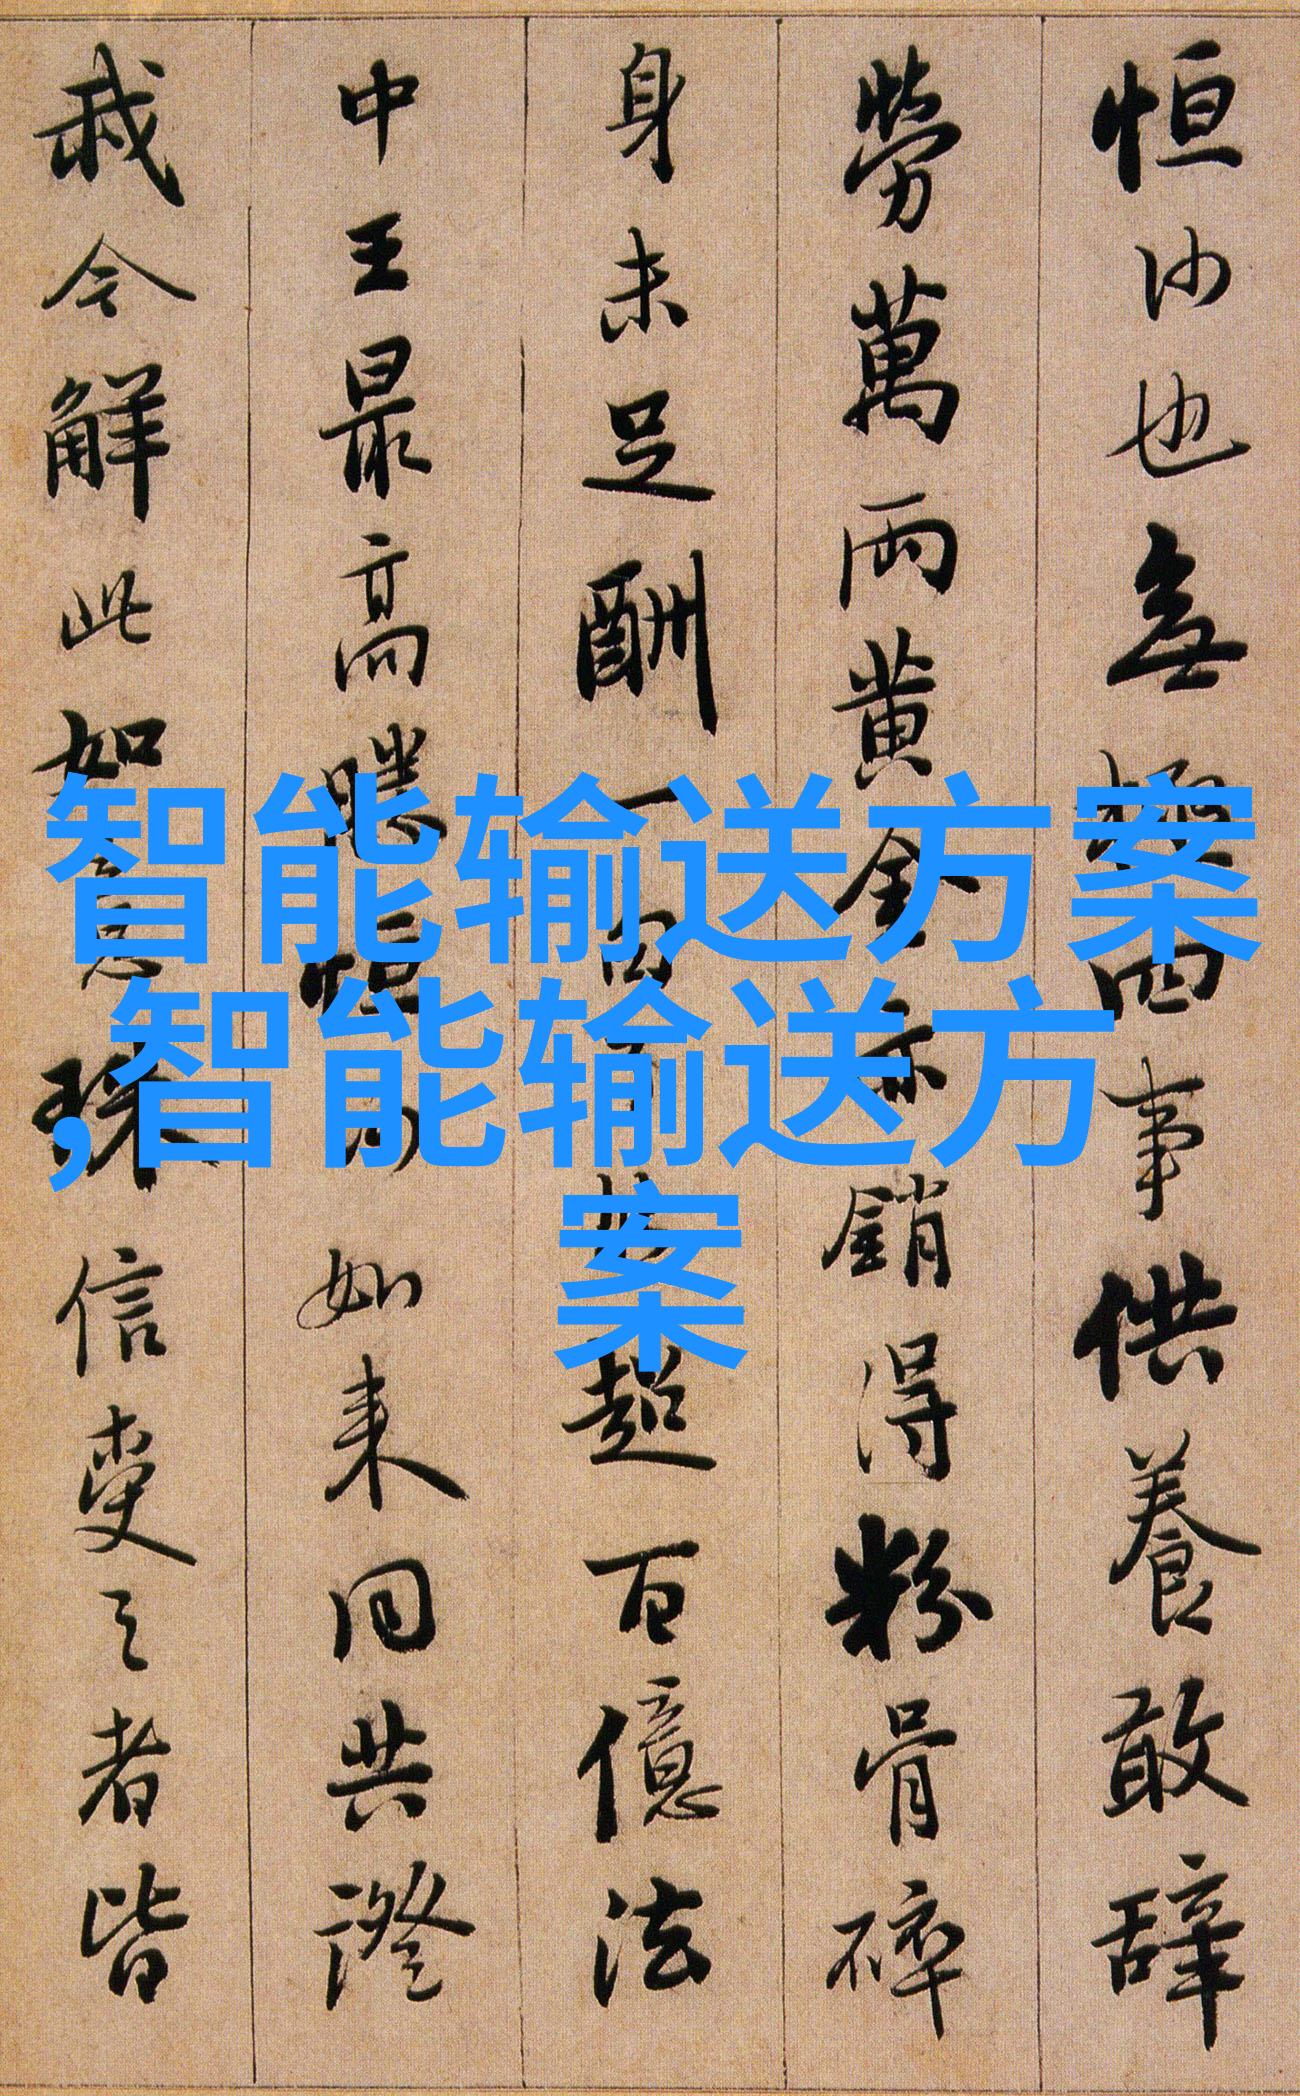 恒沙也無極四事供養敢辭
勞萬兩黃金亦銷得粉骨碎
身未足酬一句了然超百億法
中王最高勝恒沙如來同共證
我今解此如意珠信受之者皆
智能输送方案
,智能输送方
案